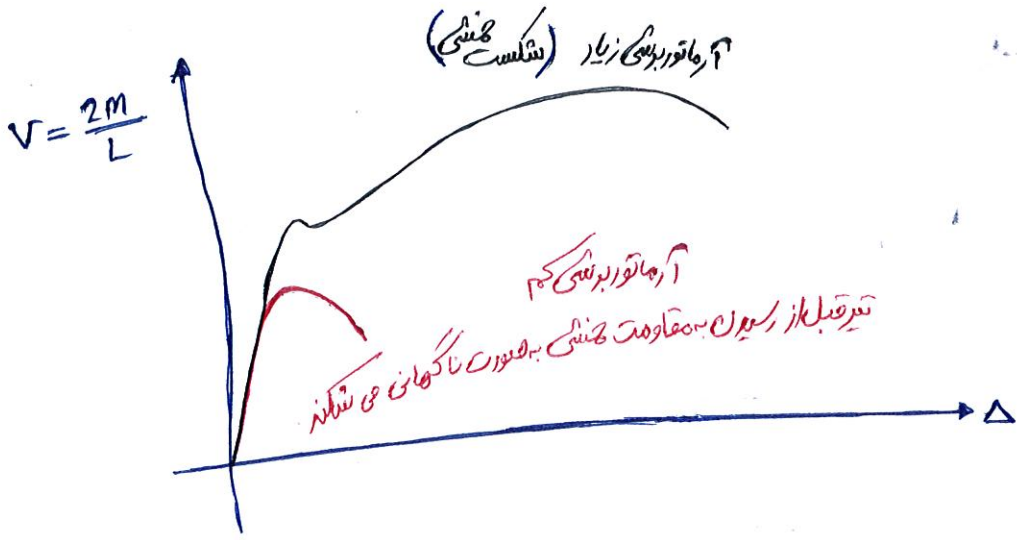 آرماتور برشی زیاد (شکست خمشی)
V = 2M/L
آرماتور برشی کم
تیر قبل از رسیدن به مقاومت خمشی به صورت ناگهانی می شکند
Δ